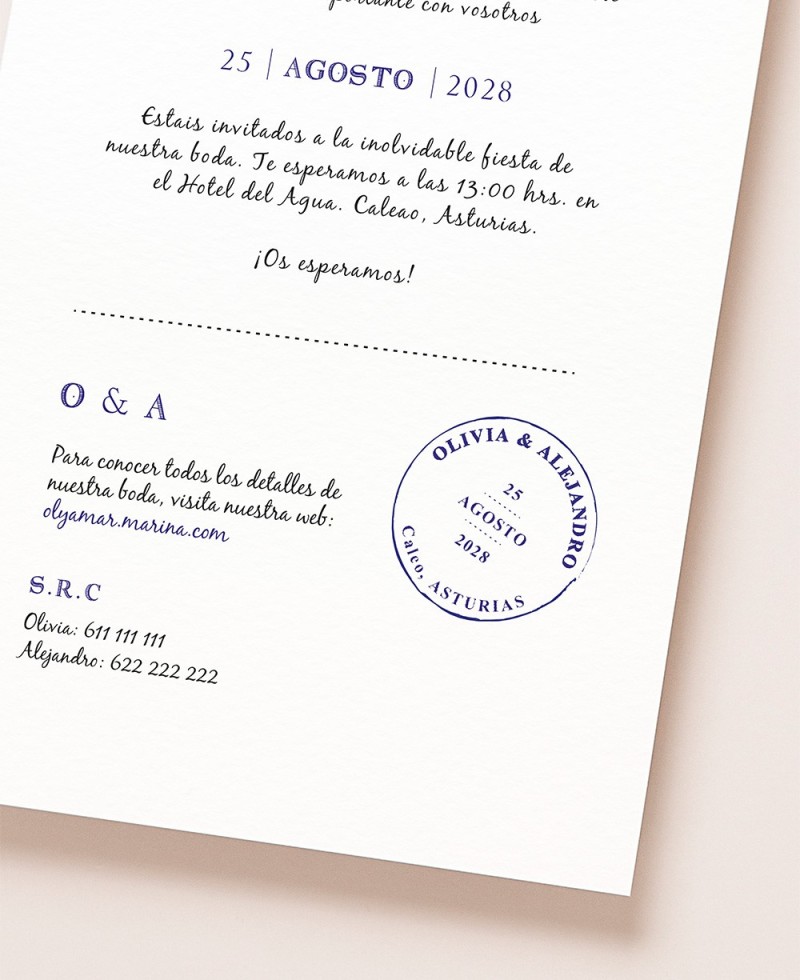 con vosotros
25 | AGOSTO | 2028
Estais invitados a la inolvidable fiesta de
nuestra boda. Te esperamos a las 13:00 hrs. en
el Hotel del Agua. Caleao, Asturias.
¡Os esperamos!
O & A
Para conocer todos los detalles de
nuestra boda, visita nuestra web:
olyamar.marina.com
S.R.C
Olivia: 611 111 111
Alejandro: 622 222 222
OLIVIA & ALEJANDRO
25
AGOSTO
2028
Caleo, ASTURIAS